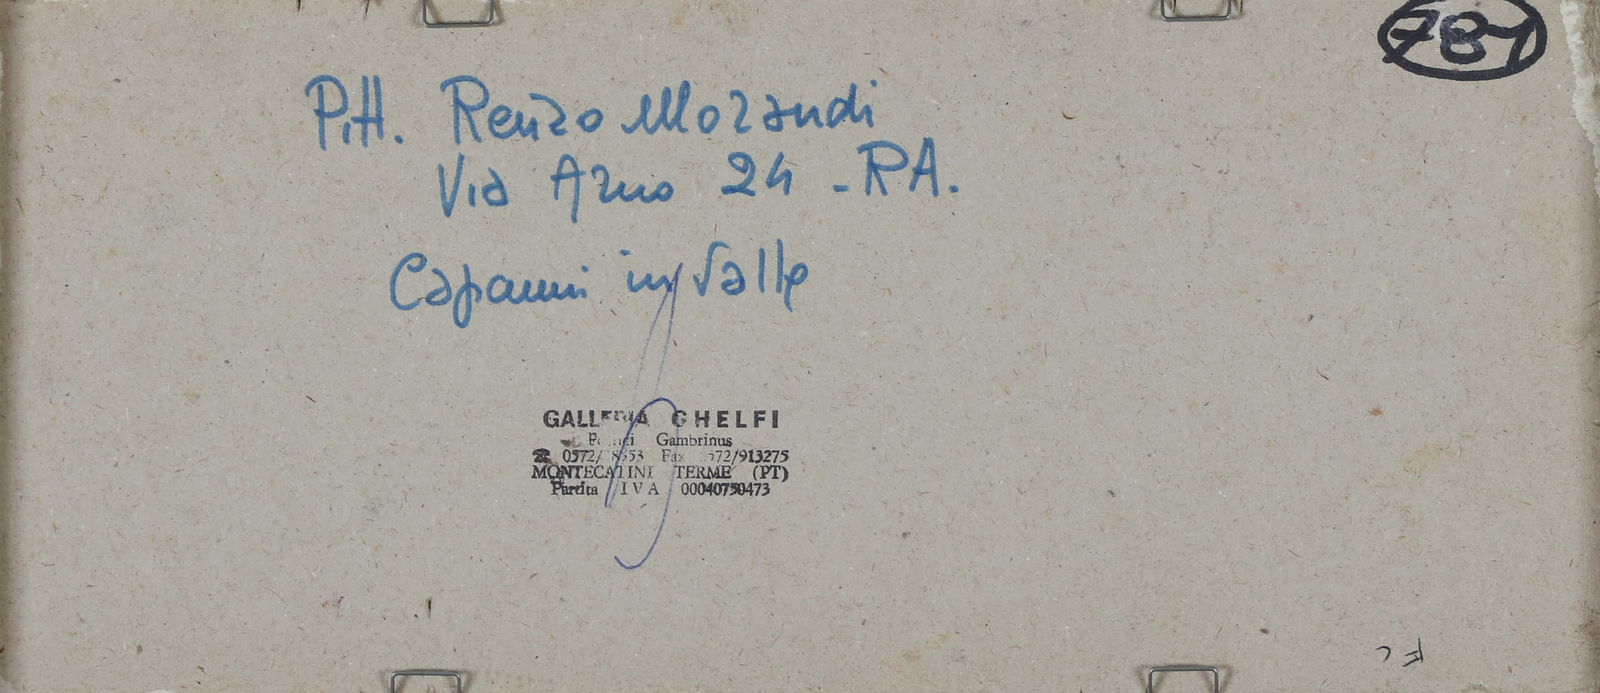 781
Pitt. Renzo Morandi
Via Arno 24 - RA.
Capanni in Valle
GALLERIA GHELFI
Gambrinus
☎ 0572/ Fax 0572/913275
MONTECATINI TERME (PT)
Partita IVA 00040750473